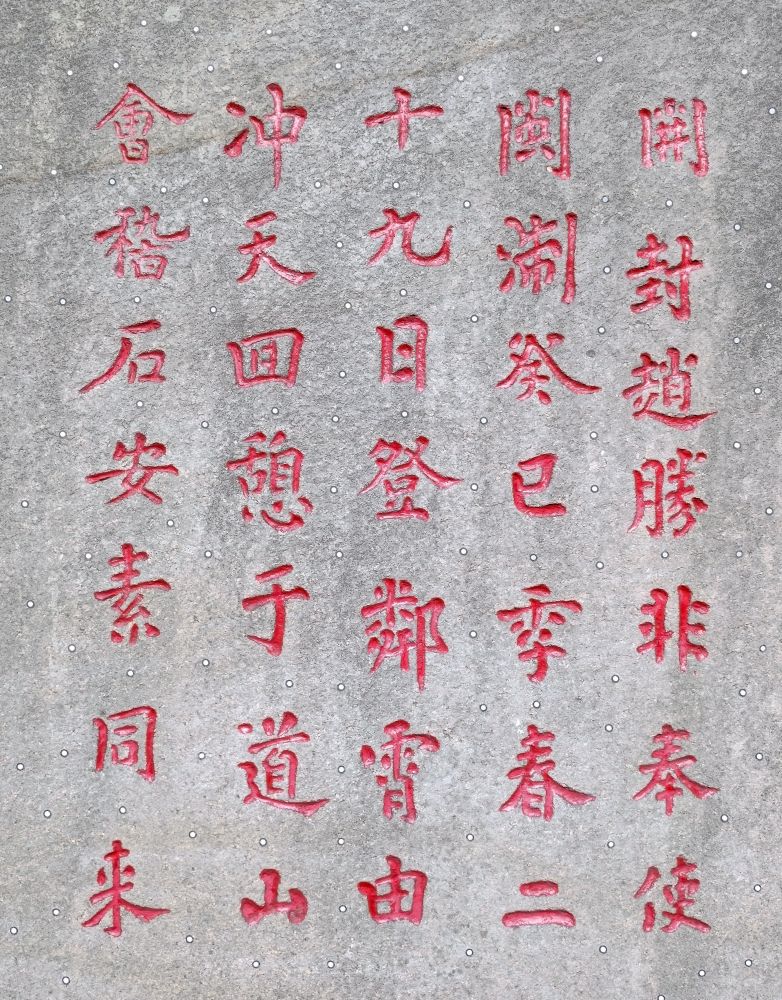 開封趙勝非奉使
閩瀞癸巳季春二
十九日登鄰霄由
冲天回憩于道山
會稽石安素同来